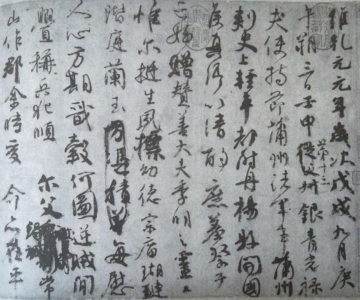 維乾元元年歲次戊戌九月庚
午朔三日壬申第十三叔銀青光祿
夫使持節蒲州諸軍事蒲州
刺史上輕車都尉丹楊縣開國
侯真卿以清酌庶羞祭于
亡姪贈贊善大夫季明之靈曰
惟爾挺生夙標幼德宗廟瑚璉
階庭蘭玉方憑積善每慰
人心方期戩穀何圖逆賊閒
釁稱兵犯順爾父常
山作郡余時受命亦在平